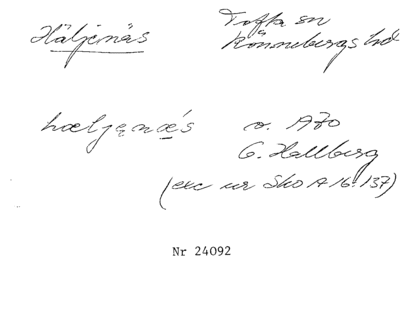 Häljenäs Tofta sn
Rönnebergs hd
hæljęnǽ̣s v. A70
G. Hallberg
(exc ur Sko A 16:137)
Nr 24092